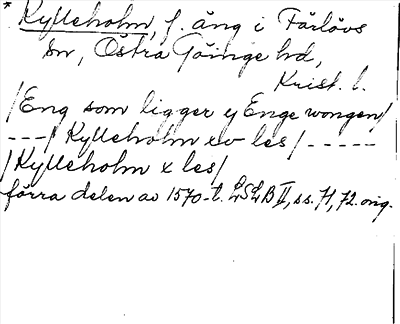 * Kylleholm, f. äng i Färlövs
sn, Östra Göinge hd,
Krist. l.
/Eng som ligger y Enge wongen/
---/ Kylleholm xv les / -----
/Kylleholm x les/
förra delen av 1570-t. LSLB II, ss. 71, 72. orig.